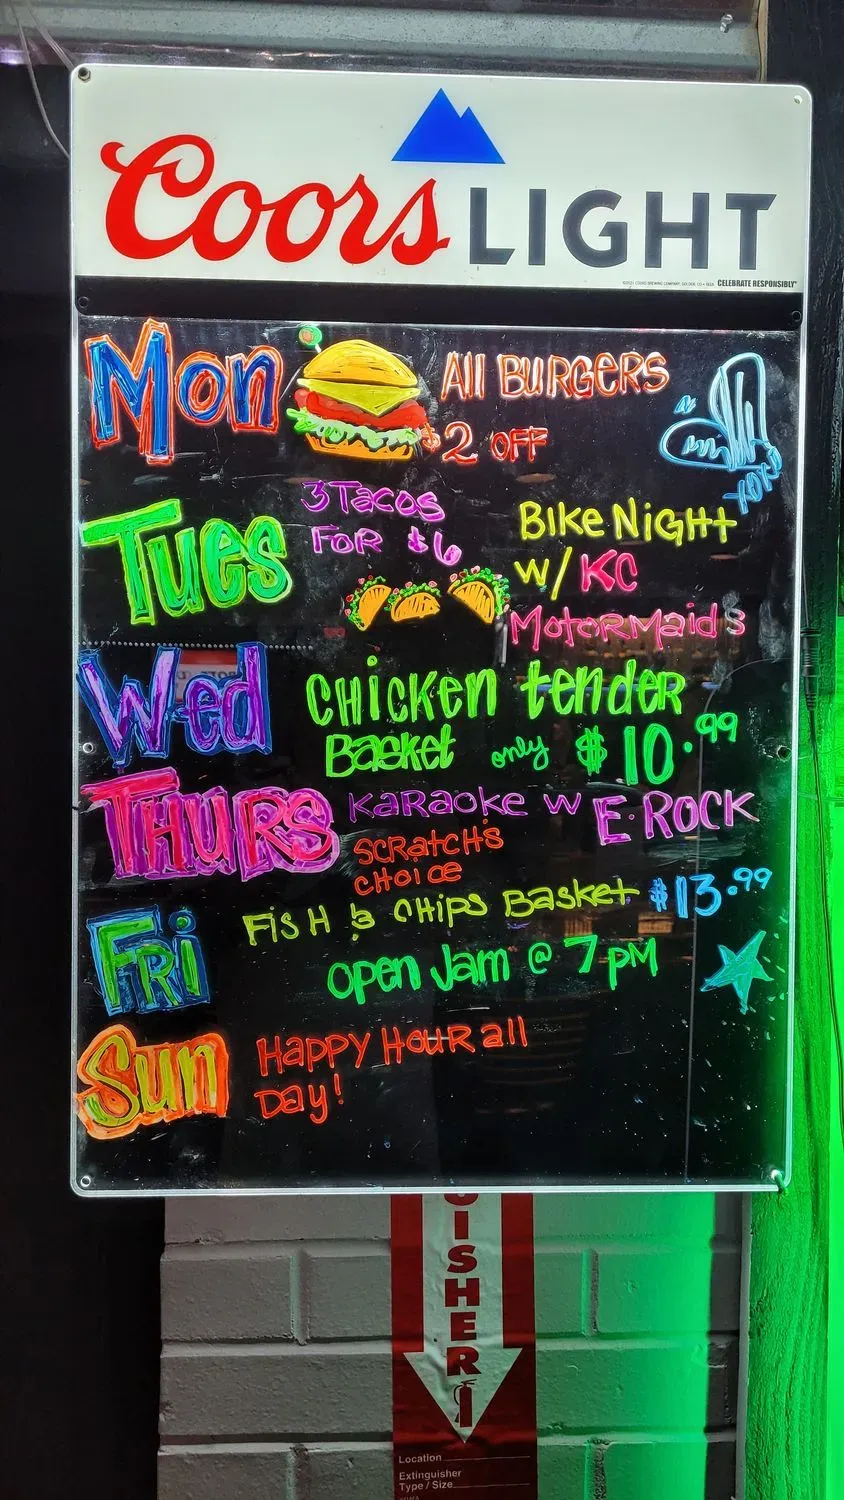 Coors LIGHT
CELEBRATE RESPONSIBLY
Mon
All BURGERS
$2 OFF
XOXO
Tues
3 Tacos
FOR $6
BIKE NIGHT
w/ KC
MOTORMaids
Wed
CHICKEN tender
Basket only $10.99
THURS
KaRaoke w E.ROCK
SCRatcH's
cHoice
FRi
FISH & CHips Basket $13.99
open Jam @ 7 pM
Sun
Happy HouR all
Day!
UISHER
Location
Extinguisher
Type / Size